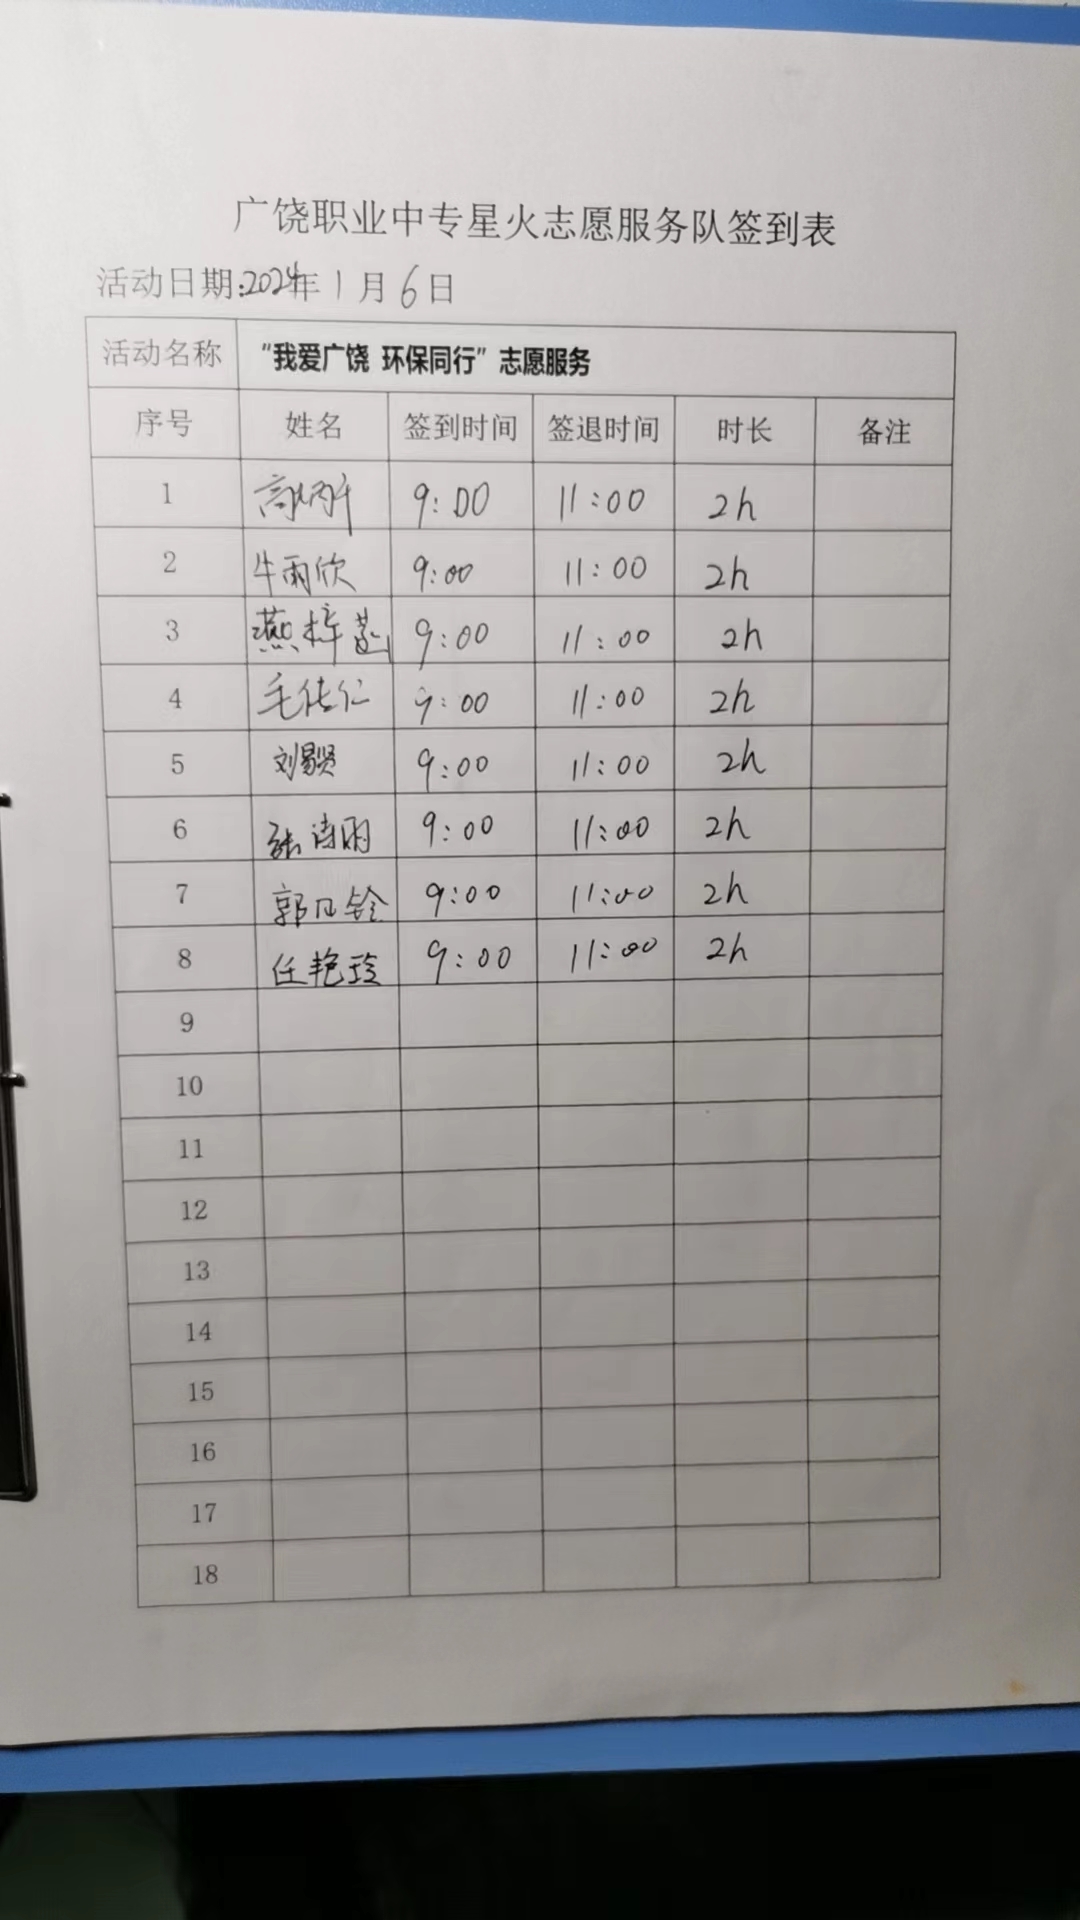 广饶职业中专星火志愿服务队签到表
活动日期:2024年1月6日
活动名称 “我爱广饶 环保同行”志愿服务
序号 姓名 签到时间 签退时间 时长 备注
1 9:00 11:00 2h
2 牛雨欣 9:00 11:00 2h
3 燕梓菡 9:00 11:00 2h
4 毛佳仁 9:00 11:00 2h
5 9:00 11:00 2h
6 张诗雨 9:00 11:00 2h
7 9:00 11:00 2h
8 任艳玲 9:00 11:00 2h
9
10
11
12
13
14
15
16
17
18